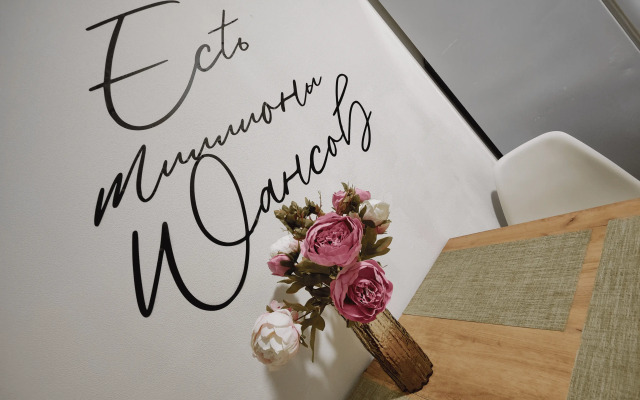 Есть
миллионы
Шансов